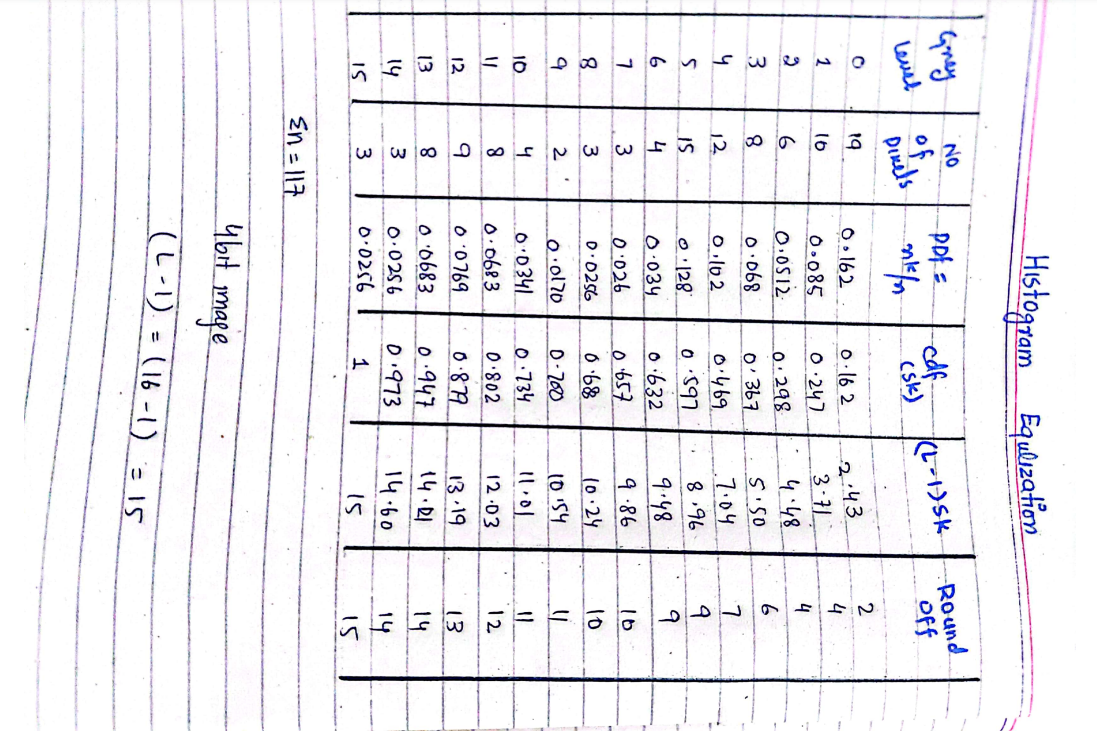 Histogram Equlization
Gray level No of Pixels Pdf = nk/n cdf (sk) (L-1)sk Round off
0 19 0.162 0.162 2.43 2
1 10 0.085 0.247 3.71 4
2 6 0.0512 0.298 4.48 4
3 8 0.068 0.367 5.50 6
4 12 0.102 0.469 7.04 7
5 15 0.128 0.597 8.96 9
6 4 0.034 0.632 9.48 9
7 3 0.026 0.657 9.86 10
8 3 0.0256 0.68 10.24 10
9 2 0.0170 0.700 10.54 11
10 4 0.0341 0.734 11.01 11
11 8 0.0683 0.802 12.03 12
12 9 0.0769 0.879 13.19 13
13 8 0.0683 0.947 14.21 14
14 3 0.0256 0.973 14.60 14
15 3 0.0256 1 15 15
Σn = 117
4bit image
(L-1) = (16-1) = 15